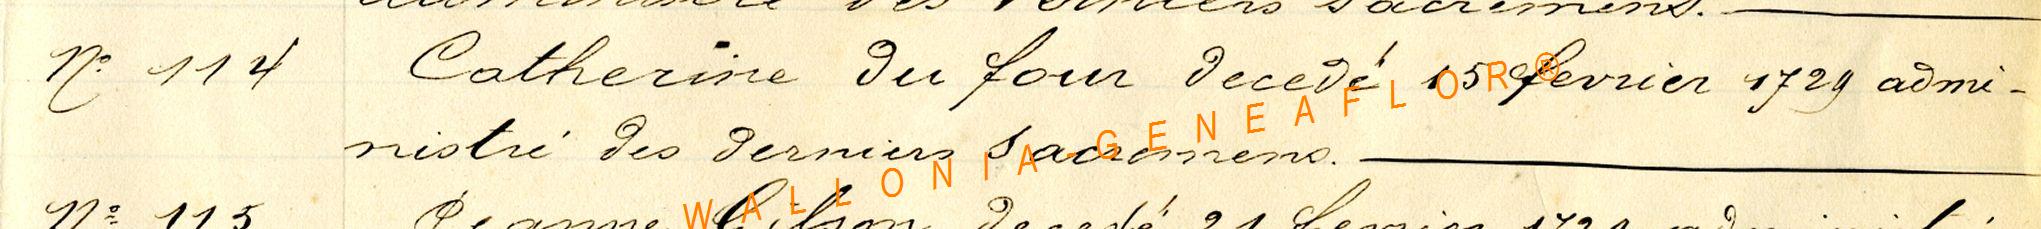 des derniers sacremens.
N° 114 Catherine du four decedé 15 fevrier 1729 admi-
nistré des derniers sacremens.
N° 115 Jeanne Gilson decedé 21 fevrier
WALLONIA-GENEAFLOR®